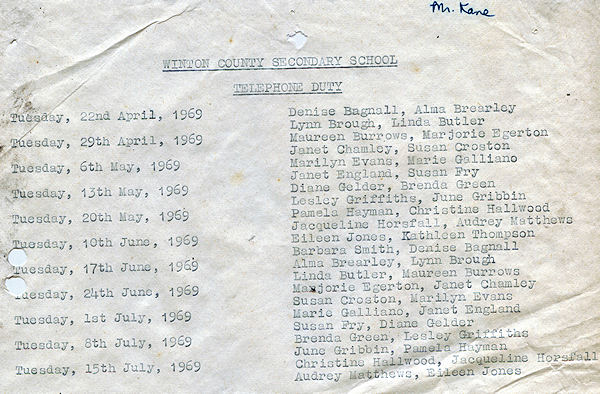 Mr. Kane
WINTON COUNTY SECONDARY SCHOOL
TELEPHONE DUTY
Tuesday, 22nd April, 1969 Denise Bagnall, Alma Brearley
Lynn Brough, Linda Butler
Tuesday, 29th April, 1969 Maureen Burrows, Marjorie Egerton
Janet Chamley, Susan Croston
Tuesday, 6th May, 1969 Marilyn Evans, Marie Galliano
Janet England, Susan Fry
Tuesday, 13th May, 1969 Diane Gelder, Brenda Green
Lesley Griffiths, June Gribbin
Tuesday, 20th May, 1969 Pamela Hayman, Christine Hallwood
Jacqueline Horsfall, Audrey Matthews
Tuesday, 10th June, 1969 Eileen Jones, Kathleen Thompson
Barbara Smith, Denise Bagnall
Tuesday, 17th June, 1969 Alma Brearley, Lynn Brough
Linda Butler, Maureen Burrows
Tuesday, 24th June, 1969 Marjorie Egerton, Janet Chamley
Susan Croston, Marilyn Evans
Tuesday, 1st July, 1969 Marie Galliano, Janet England
Susan Fry, Diane Gelder
Tuesday, 8th July, 1969 Brenda Green, Lesley Griffiths
June Gribbin, Pamela Hayman
Tuesday, 15th July, 1969 Christine Hallwood, Jacqueline Horsfall
Audrey Matthews, Eileen Jones